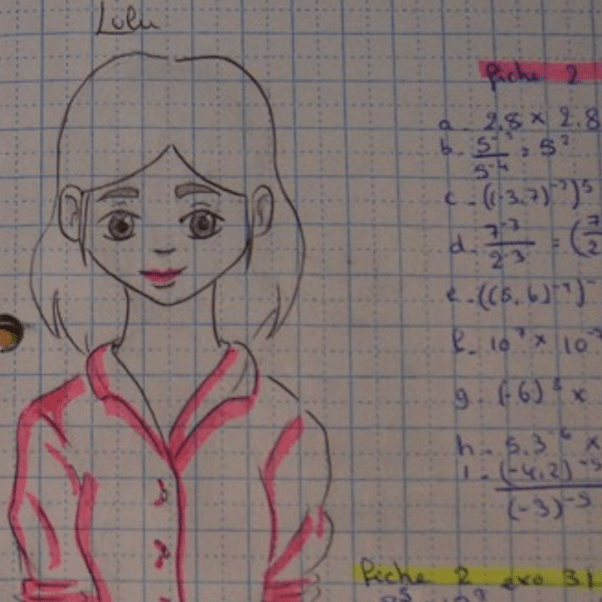 Lulu
fiche 2
a - 2,8 × 2,8
b -
5²
c - ((-3,7)⁻⁷)⁵
d - 7⁻³ / 2⁻³ = (7 / 2
e - ((5,6)⁻⁷)⁻
f - 10⁷ × 10⁻
g - (-6)³ ×
h - 5,3⁻⁶ ×
i - (-4,2)⁻⁵ / (-3)⁻⁵
fiche 2 exo 31